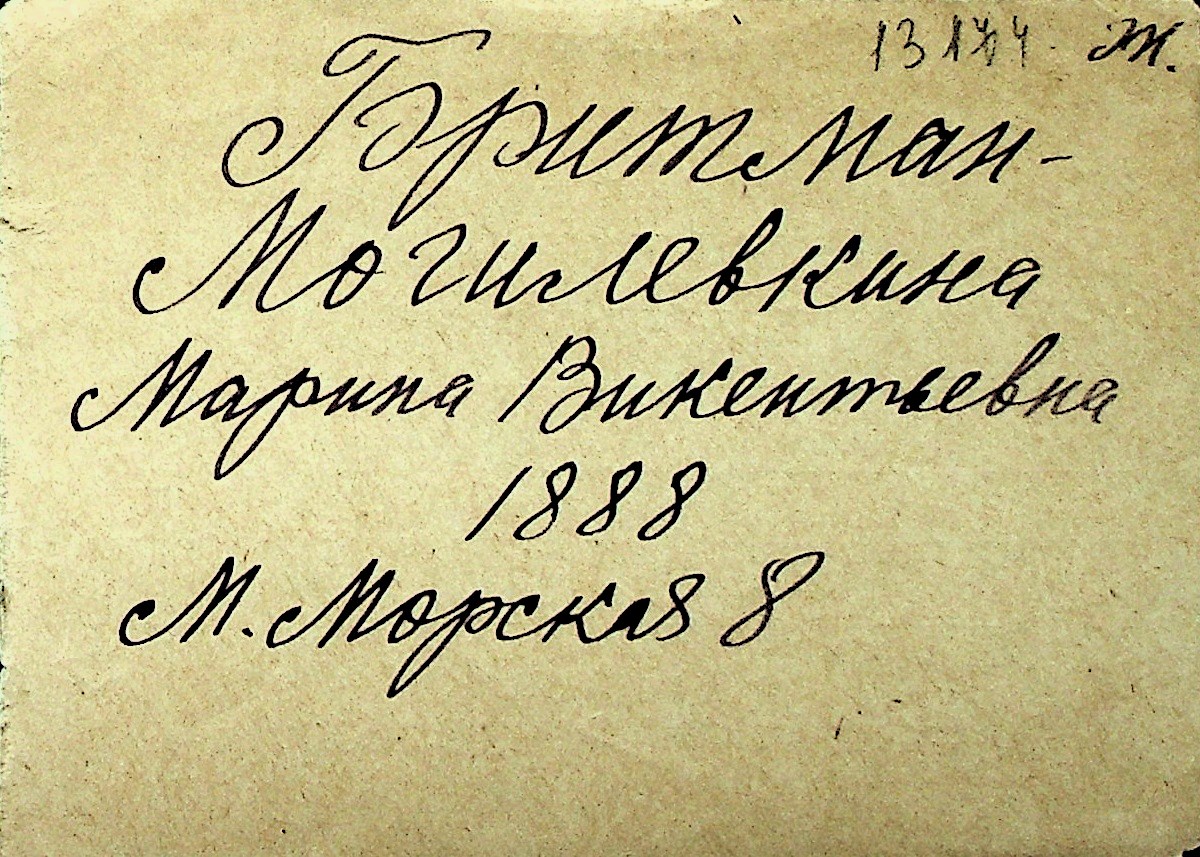 13 Ж.
Бритман-
Могилевкина
Марина Викентьевна
1888
М. Морская 8